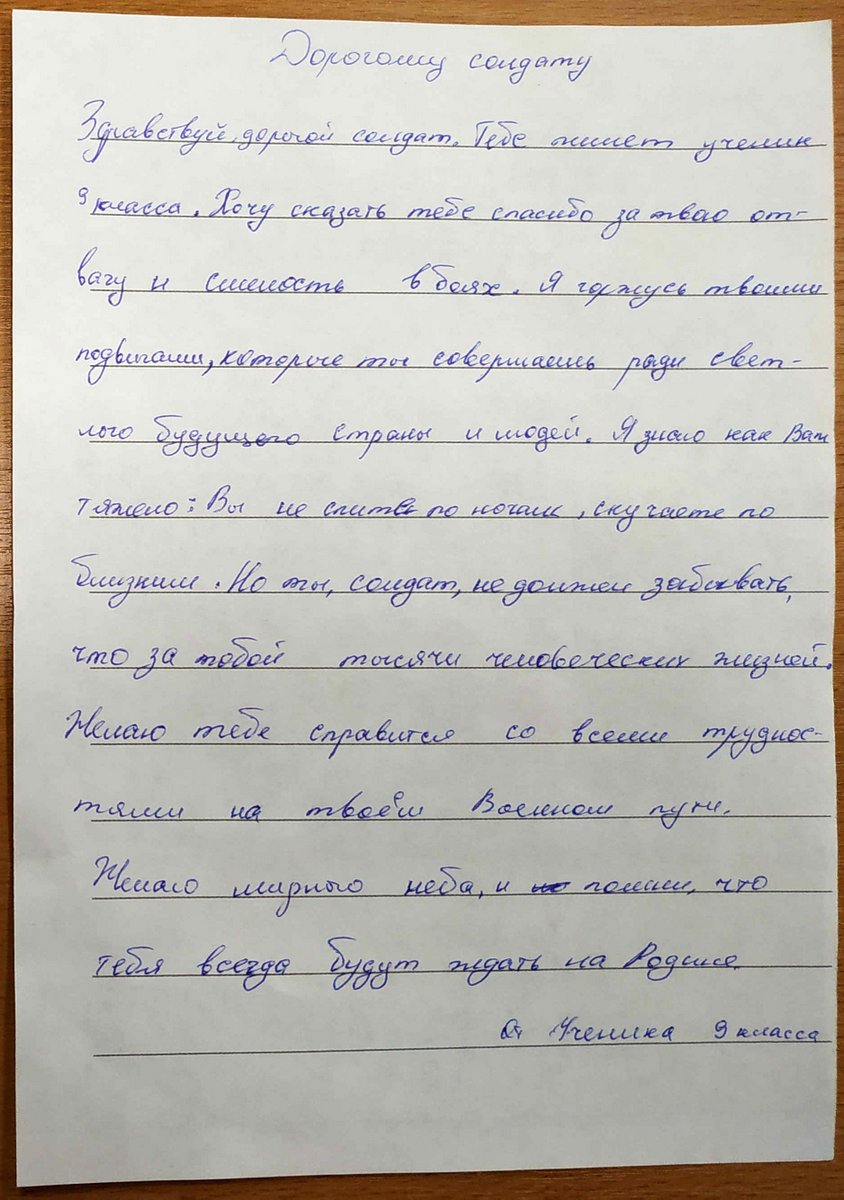 Дорогому солдату
Здравствуй, дорогой солдат. Тебе пишет ученик
9 класса. Хочу сказать тебе спасибо за твою от-
вагу и смелость в боях. Я горжусь твоими
подвигами, которые ты совершаешь ради свет-
лого будущего страны и людей. Я знаю как Вам
тяжело: Вы не спите по ночам, скучаете по
близким. Но ты, солдат, не должен забывать,
что за тобой тысячи человеческих жизней.
Желаю тебе справится со всеми труднос-
тями на твоём Военном пути.
Желаю мирного неба, и помни, что
тебя всегда будут ждать на Родине.
От Ученика 9 класса